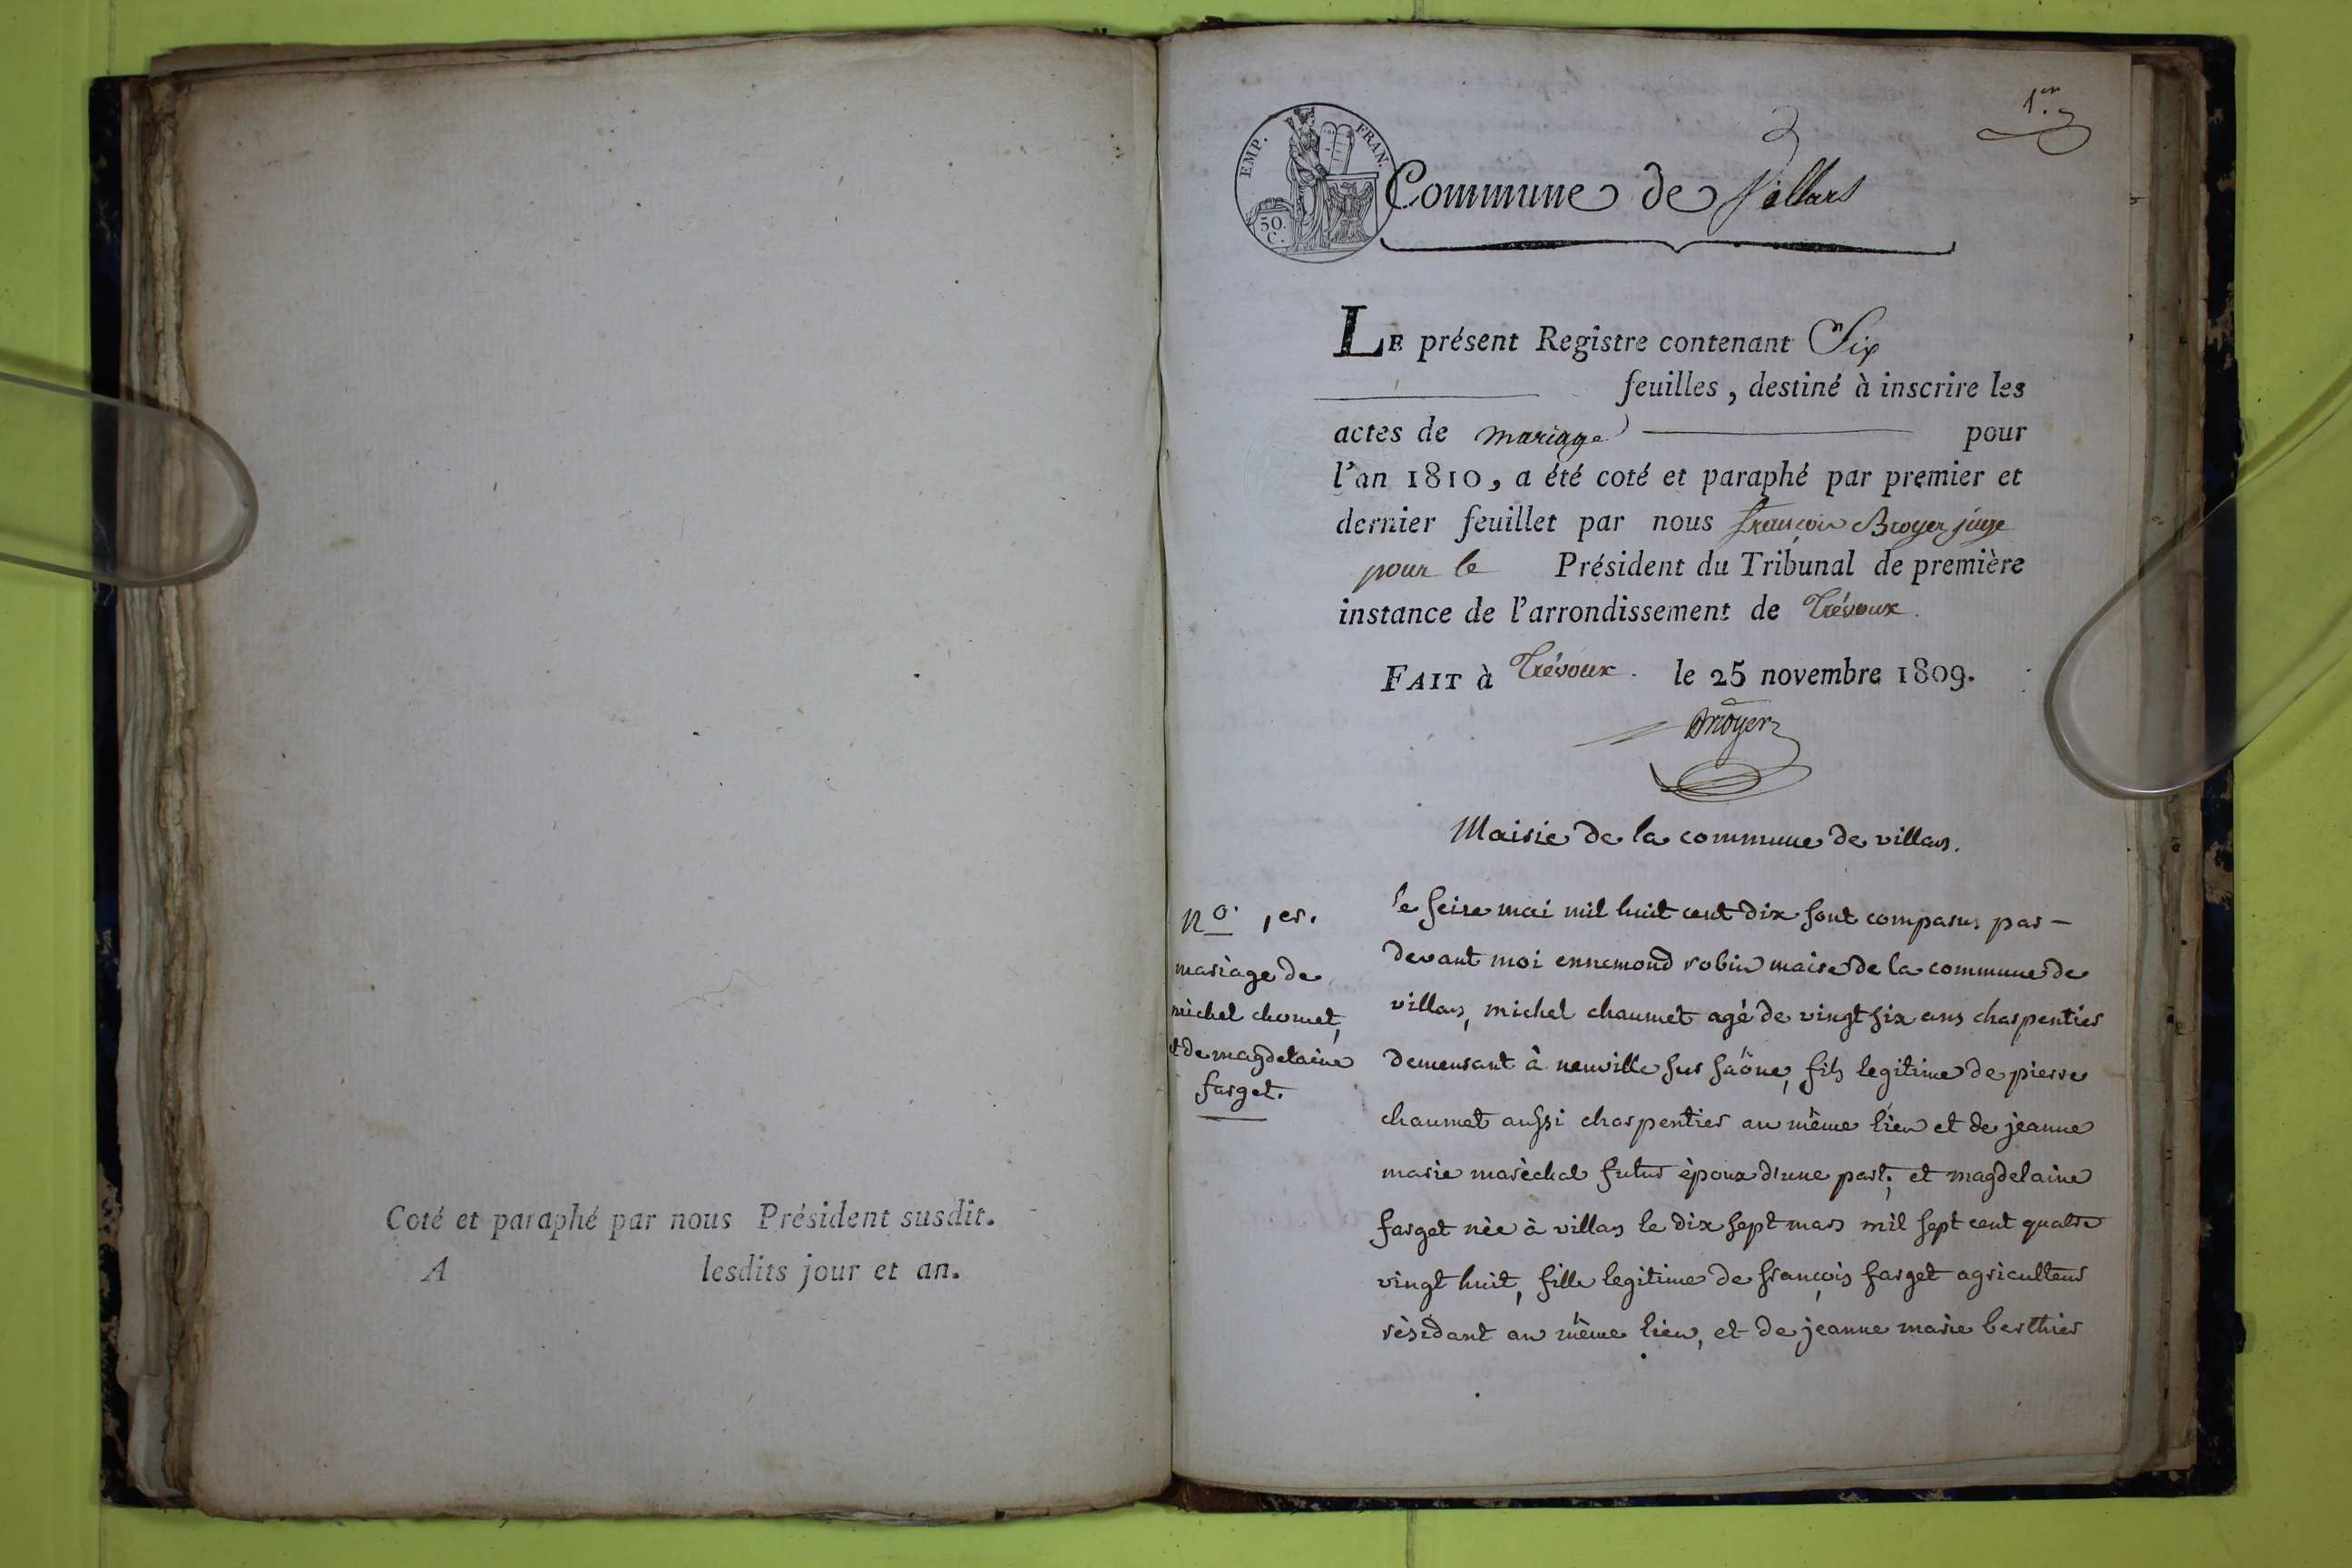 Coté et paraphé par nous Président susdit.
A lesdits jour et an.
1er
EMP. FRAN.
50. C.
Commune de Villars
LE présent Registre contenant Six
feuilles, destiné à inscrire les
actes de mariage pour
l'an 1810, a été coté et paraphé par premier et
dernier feuillet par nous françois Broyer juge
pour le Président du Tribunal de première
instance de l'arrondissement de Trévoux.
FAIT à Trévoux. le 25 novembre 1809.
Broyer
Mairie de la commune de villars.
no. 1er.
mariage de
michel chomet,
et de magdelaine
farget.
le seize mai mil huit cent dix sont comparus par-
devant moi ennemond robin maire de la commune de
villars, michel chaumet agé de vingt six ans charpentier
demeurant à neuville sur saône, fils legitime de pierre
chaumet aussi charpentier au même lieu et de jeanne
marie maréchal futur époux d'une part; et magdelaine
farget née à villars le dix sept mars mil sept cent quatre
vingt huit, fille legitime de françois farget agriculteur
résidant au même lieu, et de jeanne marie berthier